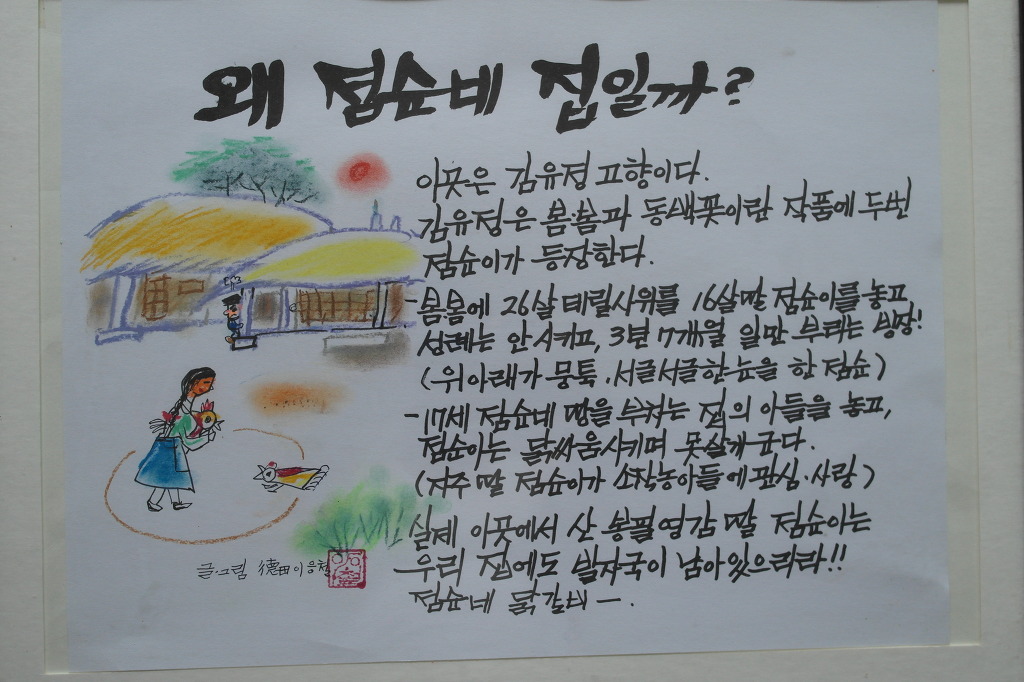 왜 점순네 집일까?
이곳은 김유정 고향이다.
김유정은 봄·봄과 동백꽃이란 작품에 두번
점순이가 등장한다.
-봄봄에 26살 데릴사위를 16살딸 점순이를 놓고
성례는 안시키고, 3년 7개월 일만 부려는 빙장!
(위아래가 뭉툭, 서글서글한 눈을 한 점순)
-17세 점순네 땅을 부쳐는 집의 아들을 놓고,
점순이는 닭싸움시키며 못살게 군다.
(지주 딸 점순이가 소작농아들에 관심·사랑)
실제 이곳에서 산 봉필영감 딸 점순이는
우리 집에도 발자국이 남아있으리라!!
점순네 닭갈비-.
글·그림 德田 이응철